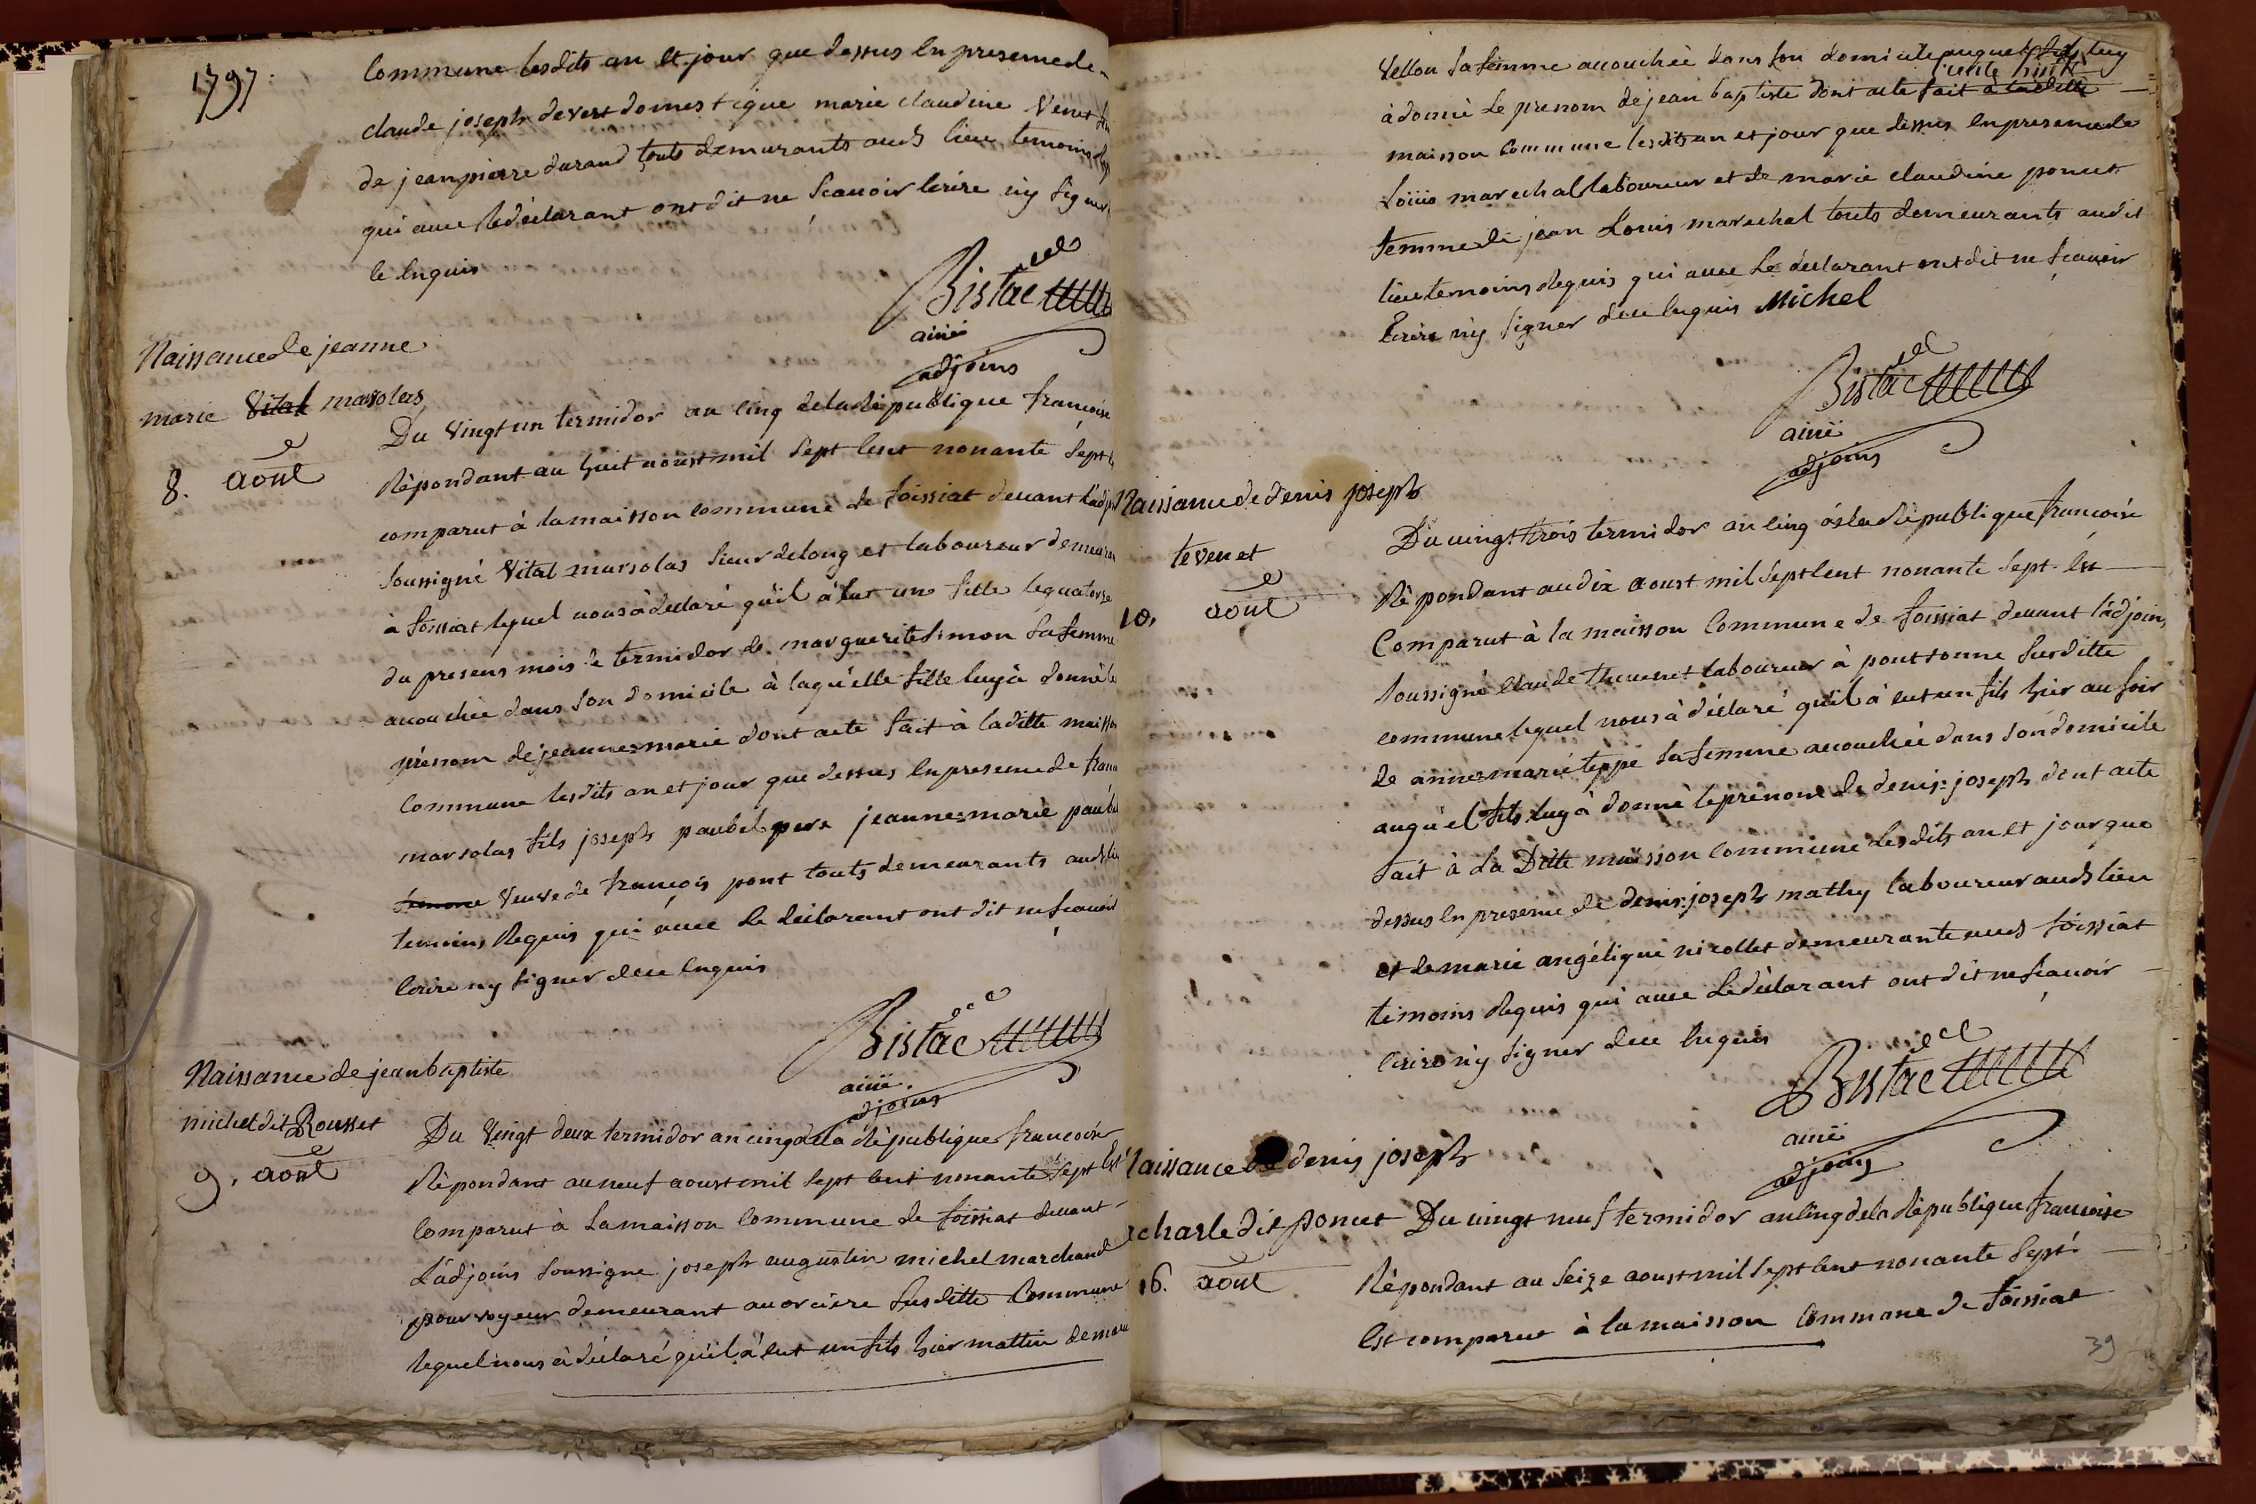 1797.
Commune lesdits an et jour que dessus en presence de
claude joseph devert domestique marie claudine Venet
de jean pierre durand touts demurants auds lieu temoins
qui avec le déclarant ont dit ne scavoir écrire ny signer
de ce enquis
Bistac
ainé
adjoins
Naissance de jeanne
marie Vital marsolas
8. aout
Du Vingt un termidor an cinq de la république francoise
Répondant au huit aoust mil sept cent nonante sept
comparut à la maisson commune de foissiat devant
soussigné Vital marsolas sieur de long et laboureur
à foissiat lequel nous à declaré qu'il à eut un fille le quatorse
du presens mois de termidor de marguerite simon sa femme
accouchée dans son domicile à laqu'elle fille luy à donné le
prénom de jeanne=marie dont acte fait à laditte
Commune lesdits an et jour que dessus en presence de
marsolas fils joseph paubel pere jeanne=marie
veuve de francois pont touts demeurants auds
temoins Requis qui avec le déclarant ont dit ne scavoir
écrire ny signer de ce enquis
Bistac
ainé.
adjoins
Naissance de jean baptiste
michel dit Rousset
9. aout
Du Vingt deux termidor an cinq de la République francoise
Répondant au neuf aoust mil sept cent nonante sept Est
Comparut à la maisson Commune de foissiat devant
L'adjoins soussigné joseph augustin michel marchand
pourvoyeur demeurant au orcière susditte Commune
lequel nous à déclaré qu'il à eut un fils hier mattin de
Vellon sa femme accouchée dans son domicile auquel fils luy
à donné le prenom de jean baptiste dont acte fait à laditte
maisson Commune lesdits an et jour que dessus en presence de
Louis marechal laboureur et de marie claudine poncet
femme de jean Louis marechal touts demeurants audit
lieu temoins Requis qui avec le déclarant ont dit ne scavoir
Ecrire ny signer de ce enquis Michel
Bistac
ainé
adjoins
Naissance de denis joseph
tevenet
10. aout
Du vingt trois termidor an cinq de la République francoise
Répondant au dix aoust mil sept cent nonante sept Est
Comparut à la maisson Commune de foissiat devant l'adjoins
soussigné claude thevenet laboureur à pont sonne susditte
commune lequel nous à déclaré qu'il à eut un fils hier au soir
de anne=marie teppe sa femme accouchée dans son domicile
auqu'el fils luy à donné le prenom de denis=joseph dont acte
fait à La Ditte maisson commune lesdits an et jour que
dessus en presence de denis=joseph mathy laboureur auds lieu
et de marie angélique nicollet demeurante auds foissiat
témoins Requis qui avec le déclarant ont dit ne scavoir
écrire ny signer de ce enquis
Bistac
ainé
adjoins
Naissance de denis joseph
charle dit poncet
16. aout
Du vingt neuf termidor an cinq de la République francoise
Répondant au seize aoust mil sept cent nonante sept
Est comparut à la maisson Commune de foissiat
39